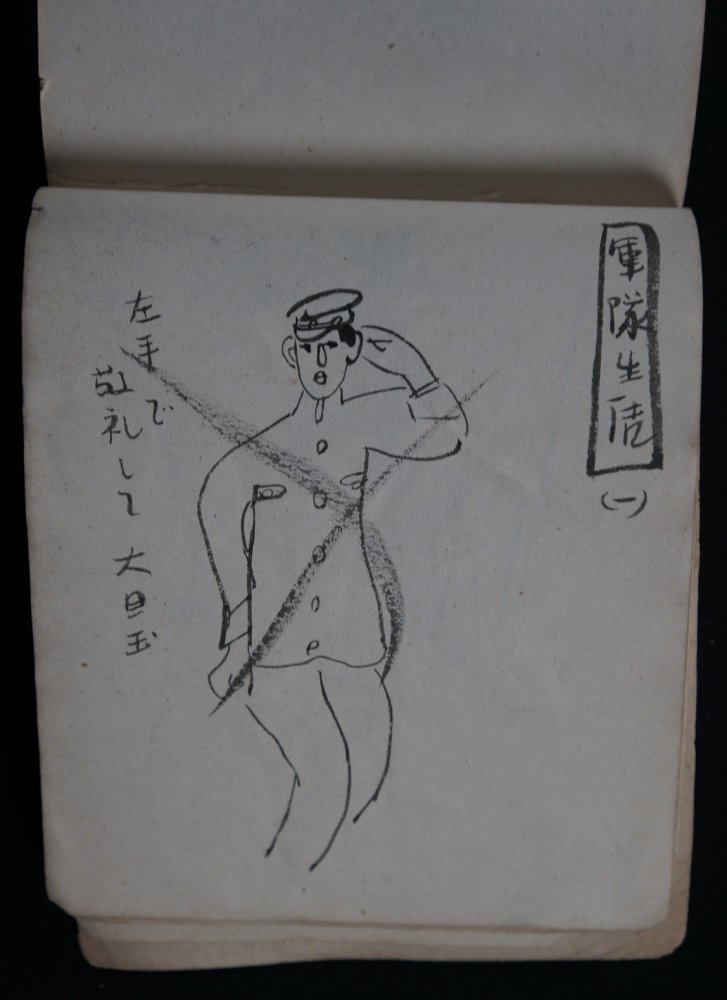 軍隊生活
(一)
左手で
敬礼して 大目玉